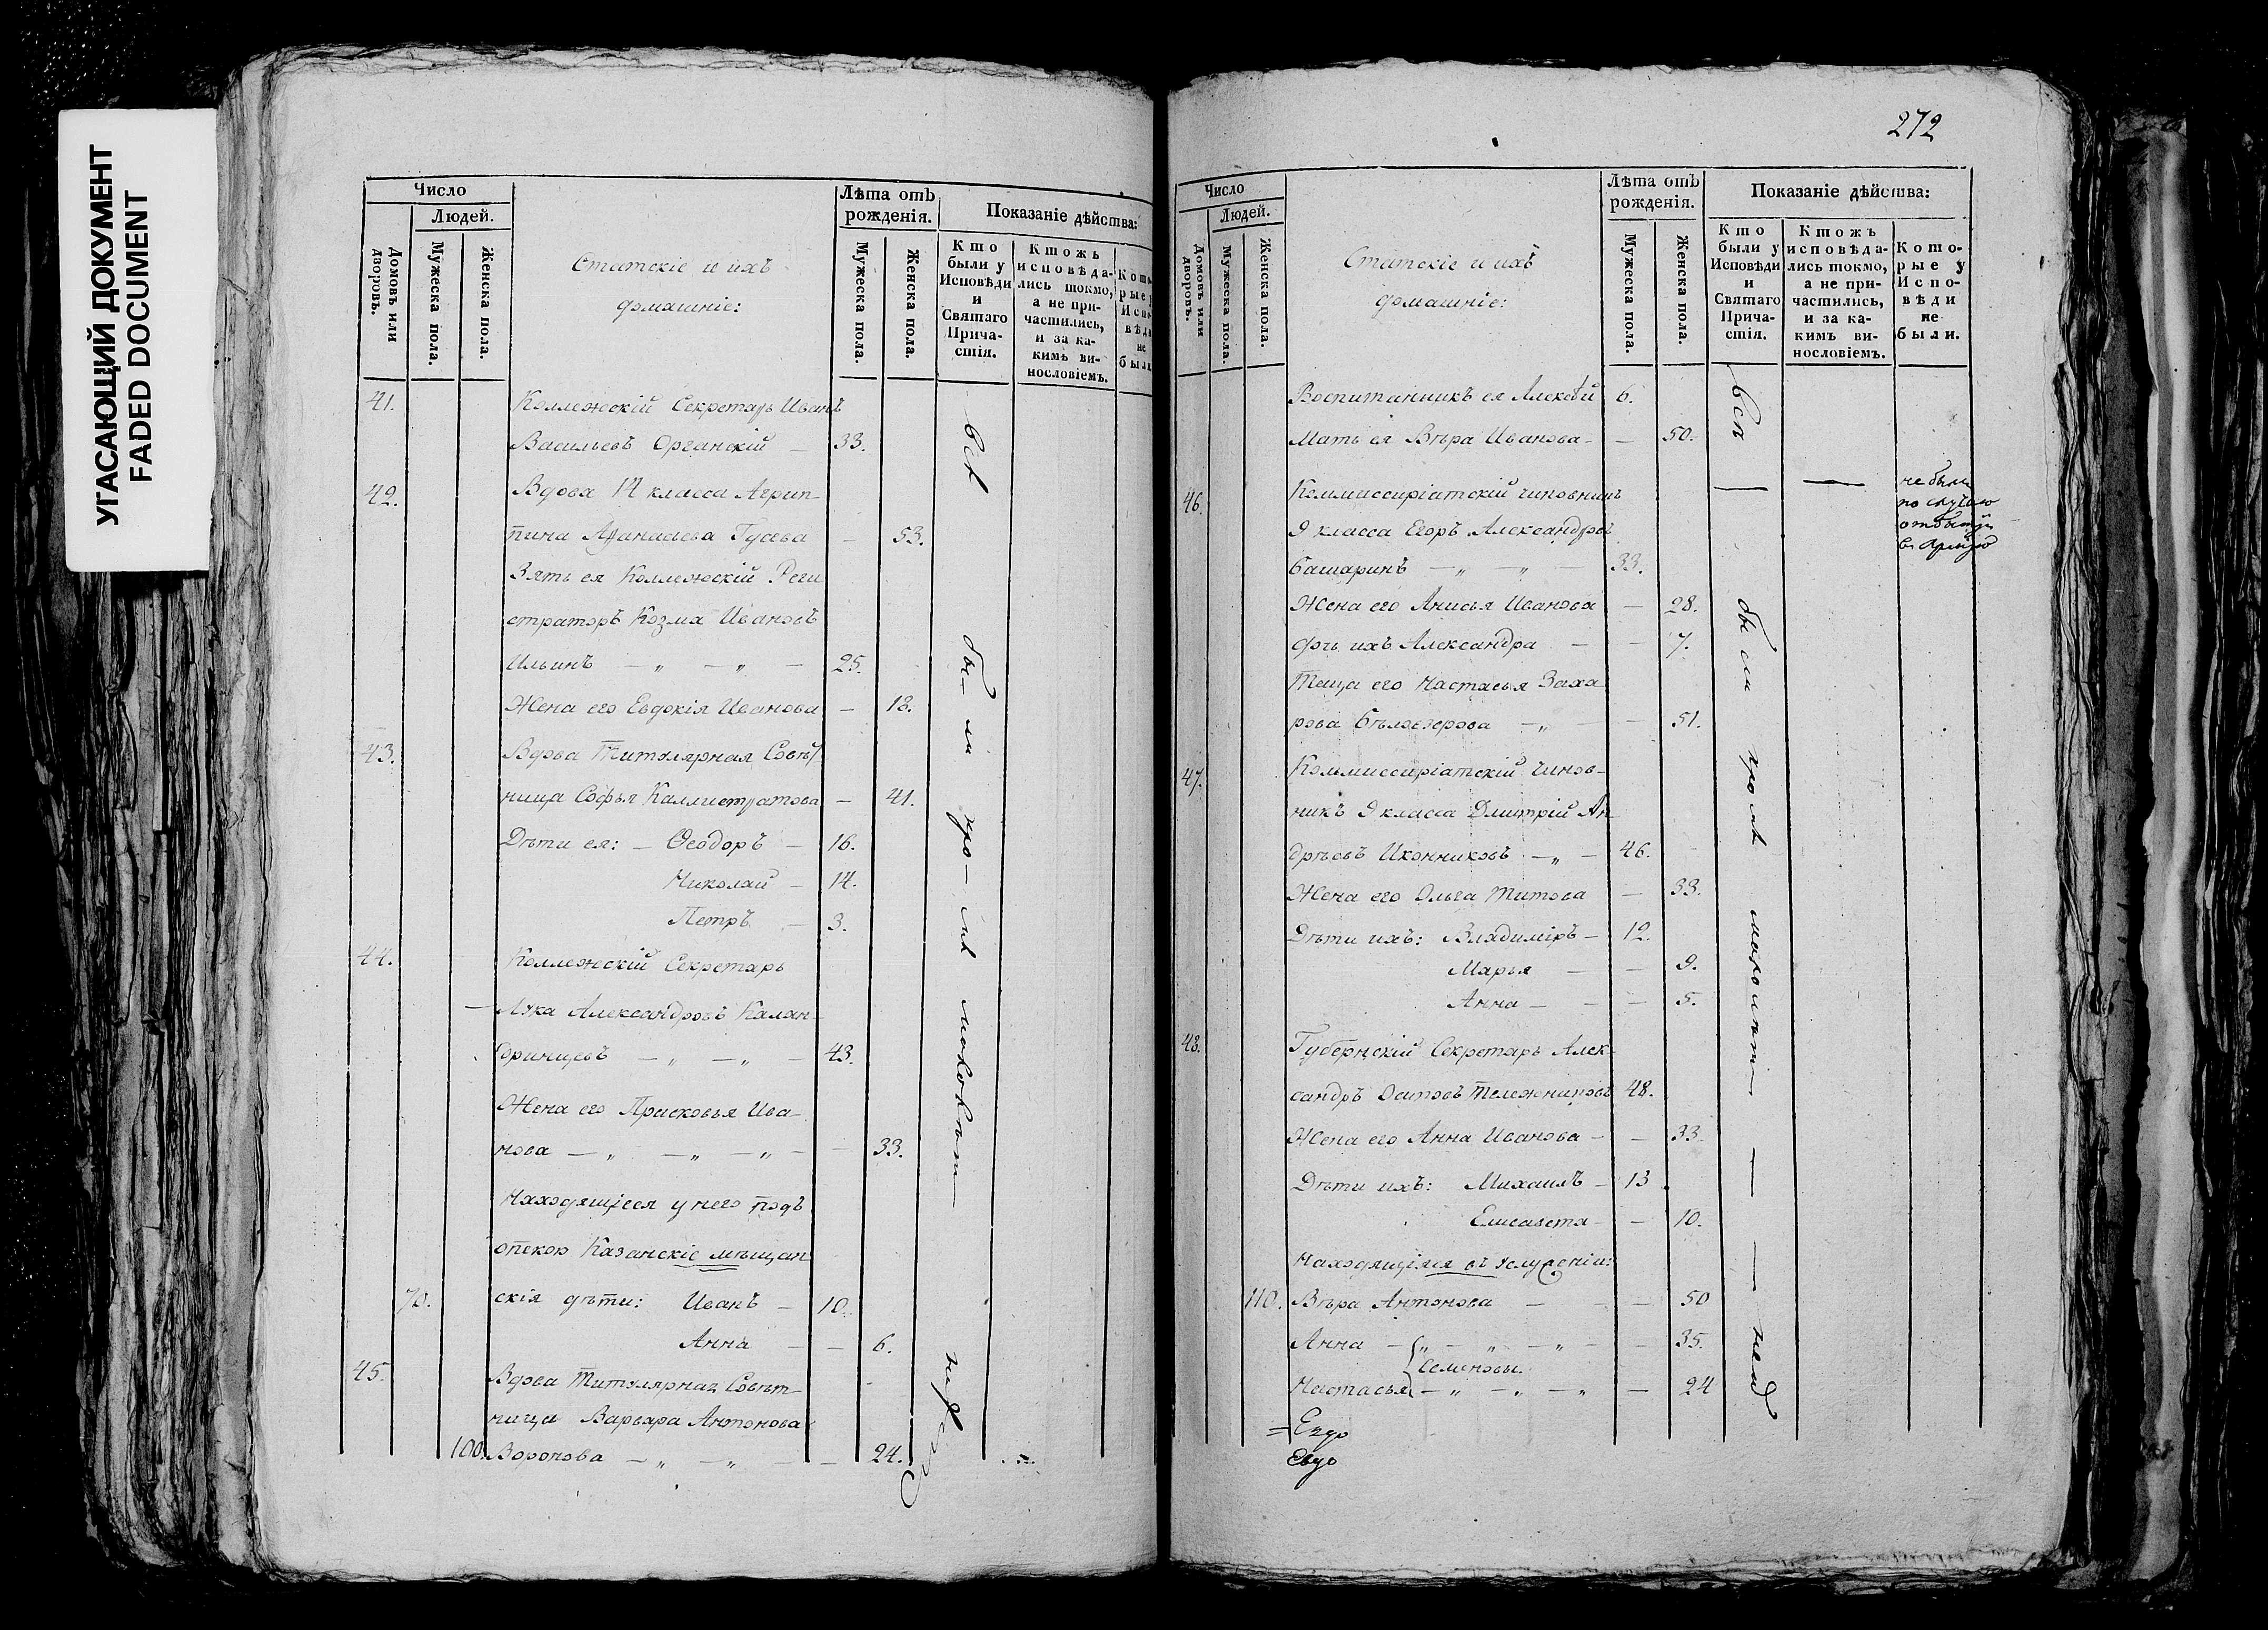 УГАСАЮЩИЙ ДОКУМЕНТ
FADED DOCUMENT
Число
Людей.
Домовъ или дворовъ.
Мужеска пола.
Женска пола.
Статскіе и ихъ
домашніе:
Лѣта отъ
рожденія.
Мужеска пола.
Женска пола.
Показаніе дѣйства:
Кто
были у
Исповѣди
и
Святаго
Прича-
стія.
Ктожъ
исповѣда-
лись токмо,
а не при-
частились,
и за ка-
кимъ ви-
нословіемъ.
41. Коллежскій Секретарь Иванъ
Васильевъ Органскій — 33.
42. Вдова 14 класса Агрип-
пина Афанасьева Гусева — 53.
Зять ея Коллежскій Реги
страторъ Козма Ивановъ
Ильинъ — „ — „ — 25.
Жена его Евдокія Иванова — 18.
43. Вдова Титулярная Совѣт
ница Софья Каллистратова — 41.
Дѣти ея: — Ѳеодоръ — 16.
Николай — 14.
Петръ — 3.
44. Коллежскій Секретарь
— Лука Александровъ Калан-
дринцевъ — „ — „ — 43.
Жена его Прасковья Ива-
нова — „ — „ — „ — 33.
Находящіеся у него подъ
опекою Казанскіе мѣщан
70. скія дѣти: Иванъ — 10.
Анна — — 6.
45. Вдова Титулярная Совѣт-
ница Варвара Антонова
100. Воронова — „ — „ — — 24.
всѣ бы- ли кро- мѣ малолѣт—
272
Число
Людей.
Домовъ или дворовъ.
Мужеска пола.
Женска пола.
Статскіе и ихъ
домашніе:
Лѣта отъ
рожденія.
Мужеска пола.
Женска пола.
Показаніе дѣйства:
Кто
были у
Исповѣди
и
Святаго
Прича-
стія.
Ктожъ
исповѣда-
лись токмо,
а не при-
частились,
и за ка-
кимъ ви-
нословіемъ.
Кото-
рые у
Испо-
вѣди
не
были.
Воспитанникъ ея Алексѣй 6.
Мать ея Вѣра Иванова — — 50.
46. Коммиссаріатскій чиновникъ
9 класса Егоръ Александровъ
Башаринъ — „ — „ — 33.
не были
по случаю
отбытія
в Армію
Жена его Анисья Иванова — 28.
дочь ихъ Александра — — 7.
Теща его Настасья Заха-
рова Бѣлозерова — „ — — 51.
47. Коммиссаріатскій Чинов-
никъ 9 класса Дмитрій Ан
дрѣевъ Иконниковъ — „ — 46.
Жена его Ольга Титова — 33.
Дѣти ихъ: Владиміръ — 12.
Марья — — 9.
Анна — — — 5.
48. Губернскій Секретарь Алек-
сандръ Осиповъ Тележниковъ 48.
Жена его Анна Иванова — — 33.
Дѣти ихъ: Михаилъ — 13.
Елисавета — — 10.
Находящіяся въ услуженіи:
110. Вѣра Антонова — — — 50
Анна — „ — „ — „ — — 35.
Семеновы.
Настасья — „ — „ — „ — 24
Евдо
всѣ были кромѣ малолѣт—